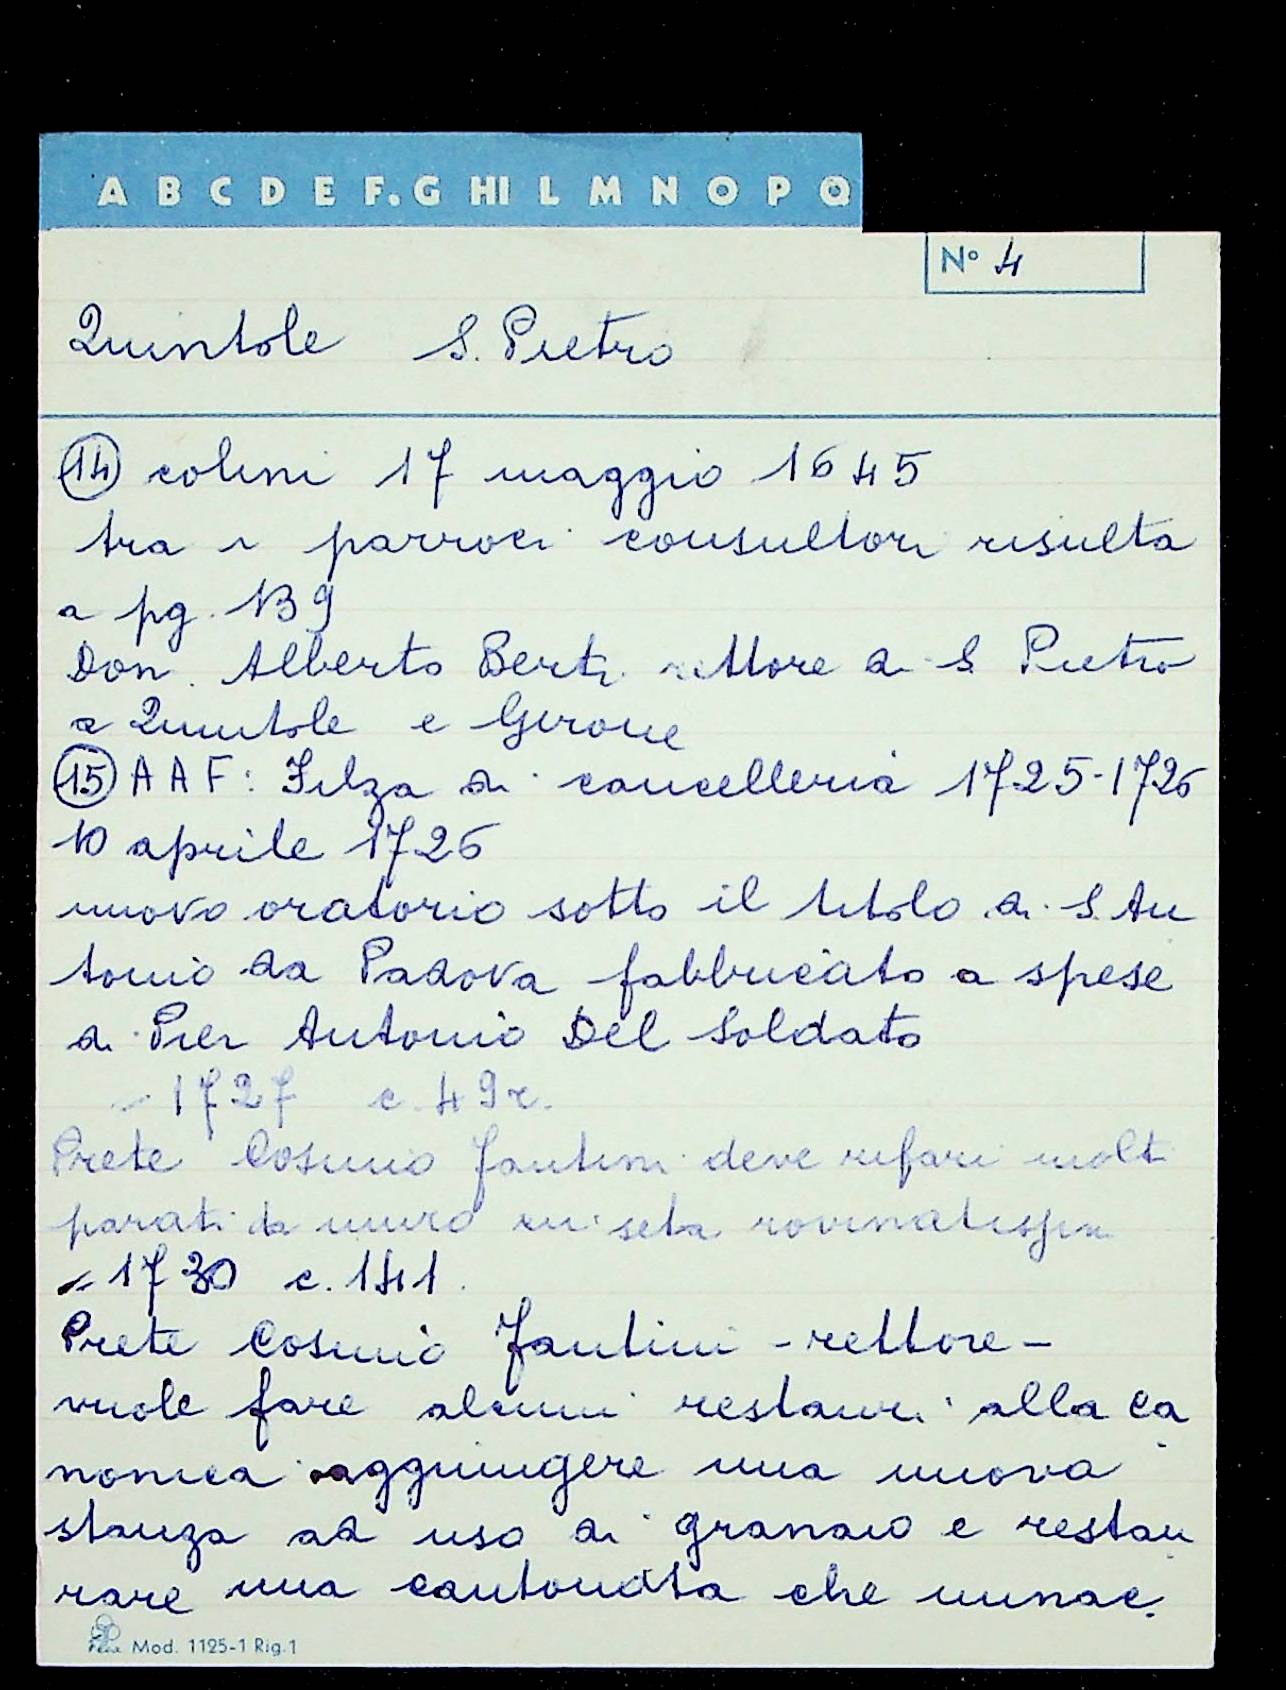 A B C D E F. G HI L M N O P Q
N° 4
Quintole S. Pietro
(14) colini 17 maggio 1645
tra i parroci consultori risulta
a pg. 139
Don. Alberto Berti rettore di S. Pietro
a Quintole e Girone
(15) AAF: Filza di cancelleria 1725-1726
10 aprile 1726
nuovo oratorio sotto il titolo di S. An
tonio da Padova fabbricato a spese
di Pier Antonio Del Soldato
- 1727 c. 49r.
Prete Cosimo Fantini deve rifari molti
parati da muro in seta
- 1730 c. 141.
Prete Cosimo Fantini - rettore -
vuole fare alcuni restauri alla ca
nonica aggiungere una nuova
stanza ad uso di granaio e restau
rare una cantonata che minac.
Mod. 1125-1 Rig.1